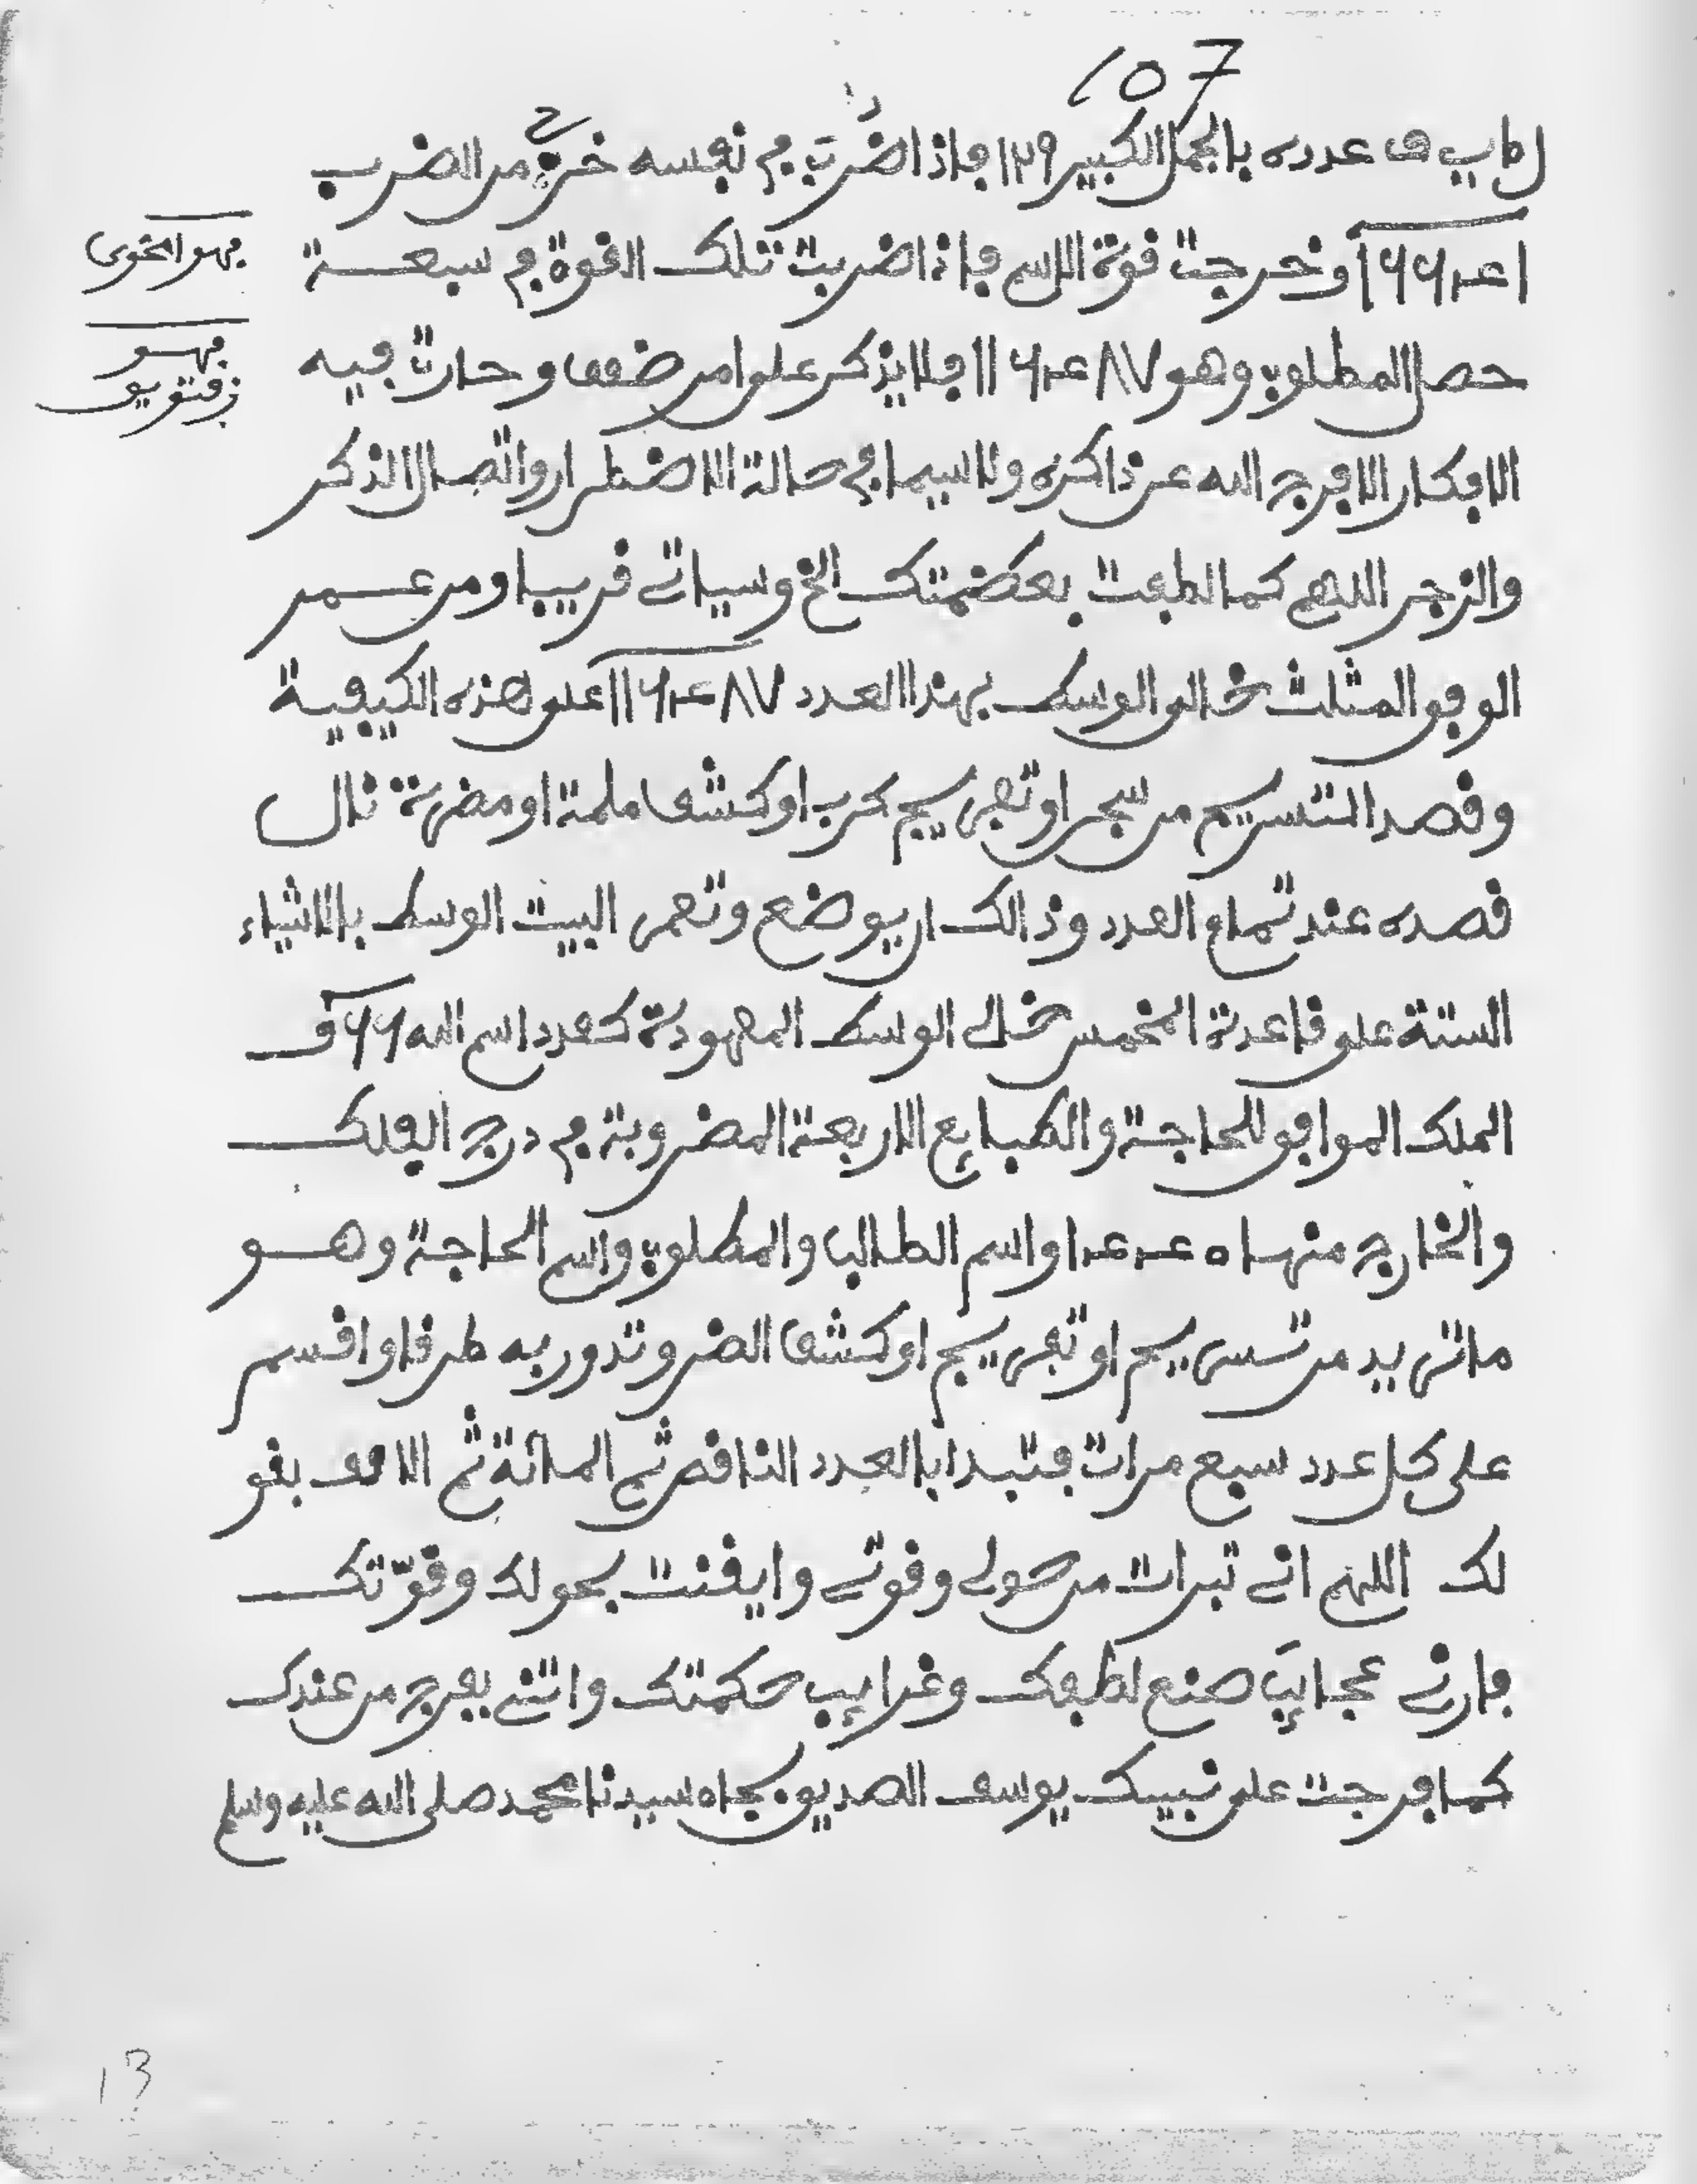 107
ل ط ي ف عدده بالجمل الكبير ١٢٩ فإذا ضرب في نفسه خرج من الضرب
١٦٦٤١ وخرجت قوة الاسم فإذا ضربت تلك القوة في سبعة
حصل المطلوب وهو ١١٦٤٨٧ فلا يذكر على أمر ضعف وحارت فيه
الافكار الا فرج الله عن ذاكره ولاسيما في حالة الاضطرار واتصال الذكر
والزجر اللهم كما لطفت بعظمتك الخ وسياتي قريبا ومن عمر
الوفق المثلث خالي الوسط بهذا العدد ١١٦٤٨٧ على هذه الكيفية
وقصد التسريح من سجن او تفريج كرب او كشف ملمة او مضرة نال
قصده عند تمام العدد وذالك ان يوضع وتعمر البيت الوسط بالاشياء
الستة على قاعدة المخمس خالي الوسط المعهودة كعدد اسم الله ٦٦ و
الملك الموافق للحاجة والطبايع الاربعة المضروبة في درج الفلك
والخارج منها ١٤٤٠ واسم الطالب والمطلوب واسم الحاجة وهو
ما تريد من تسريح او تفريج او كشف الضر وتدور به طرفا واقسم
على كل عدد سبع مرات فتبدا بالعدد الناقص ثم المائة ثم الالف بقو
لك اللهم اني تبرات من حولي وقوتي وايقنت بحولك وقوّتك
فارني عجايب صنع لطفك وغرايب حكمتك واتني بفرج من عندك
كما فرجت على نبيك يوسف الصديق بجاه سيدنا محمد صلى الله عليه وسلم
فهو
13